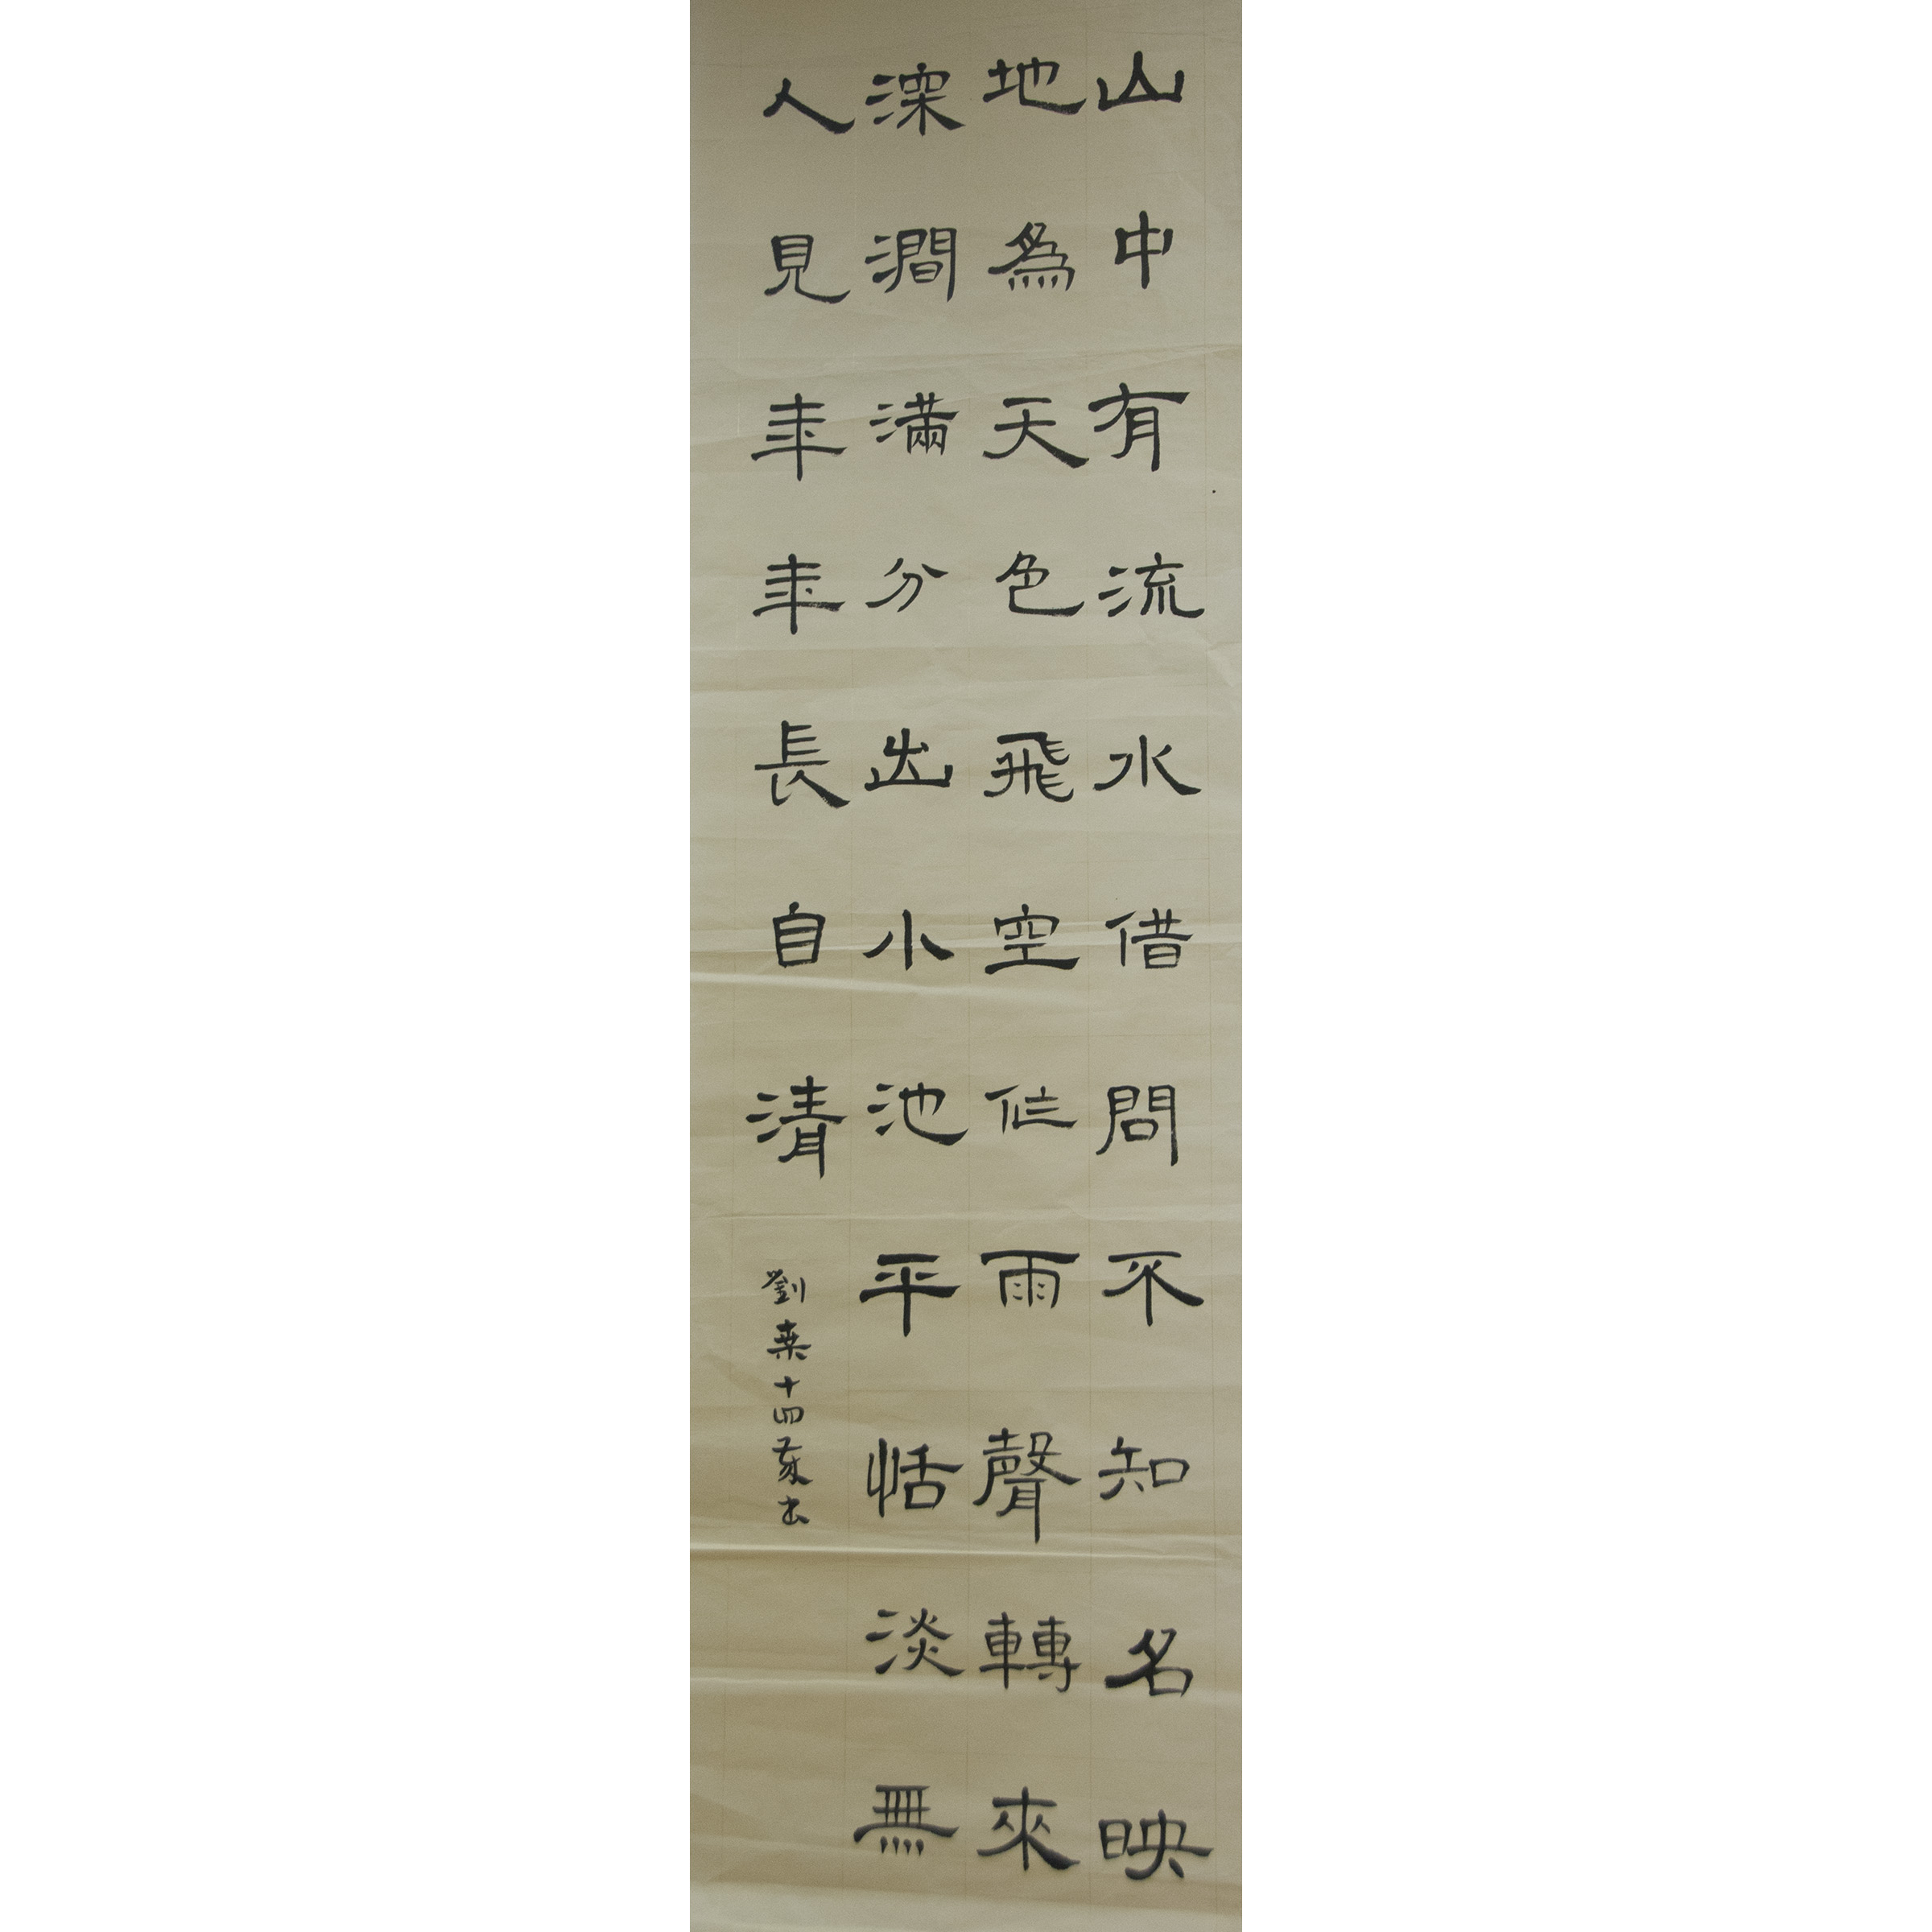 山中有流水借問不知名映
地為天色飛空作雨聲轉來
深澗滿分出小池平恬淡無
人見年年長自清
劉桑十四歲書